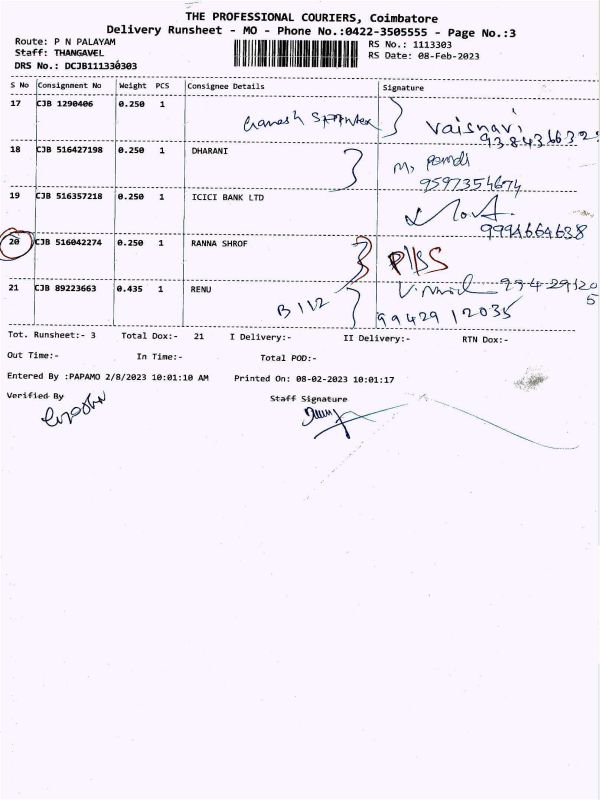 THE PROFESSIONAL COURIERS, Coimbatore
Delivery Runsheet - MO - Phone No.:0422-3505555 - Page No.:3
Route: P N PALAYAM RS No.: 1113303
Staff: THANGAVEL RS Date: 08-Feb-2023
DRS No.: DCJB111330303
S No Consignment No Weight PCS Consignee Details Signature
17 CJB 1290406 0.250 1 Ganesh Vaisnavi
18 CJB 516427198 0.250 1 DHARANI M,
9597354674
19 CJB 516357218 0.250 1 ICICI BANK LTD
9994664638
20 CJB 516042274 0.250 1 RANNA SHROF
21 CJB 89223663 0.435 1 RENU B 112 9942912035
9942912035
Tot. Runsheet:- 3 Total Dox:- 21 I Delivery:- II Delivery:- RTN Dox:-
Out Time:- In Time:- Total POD:-
Entered By :PAPAMO 2/8/2023 10:01:10 AM Printed On: 08-02-2023 10:01:17
Verified By Staff Signature